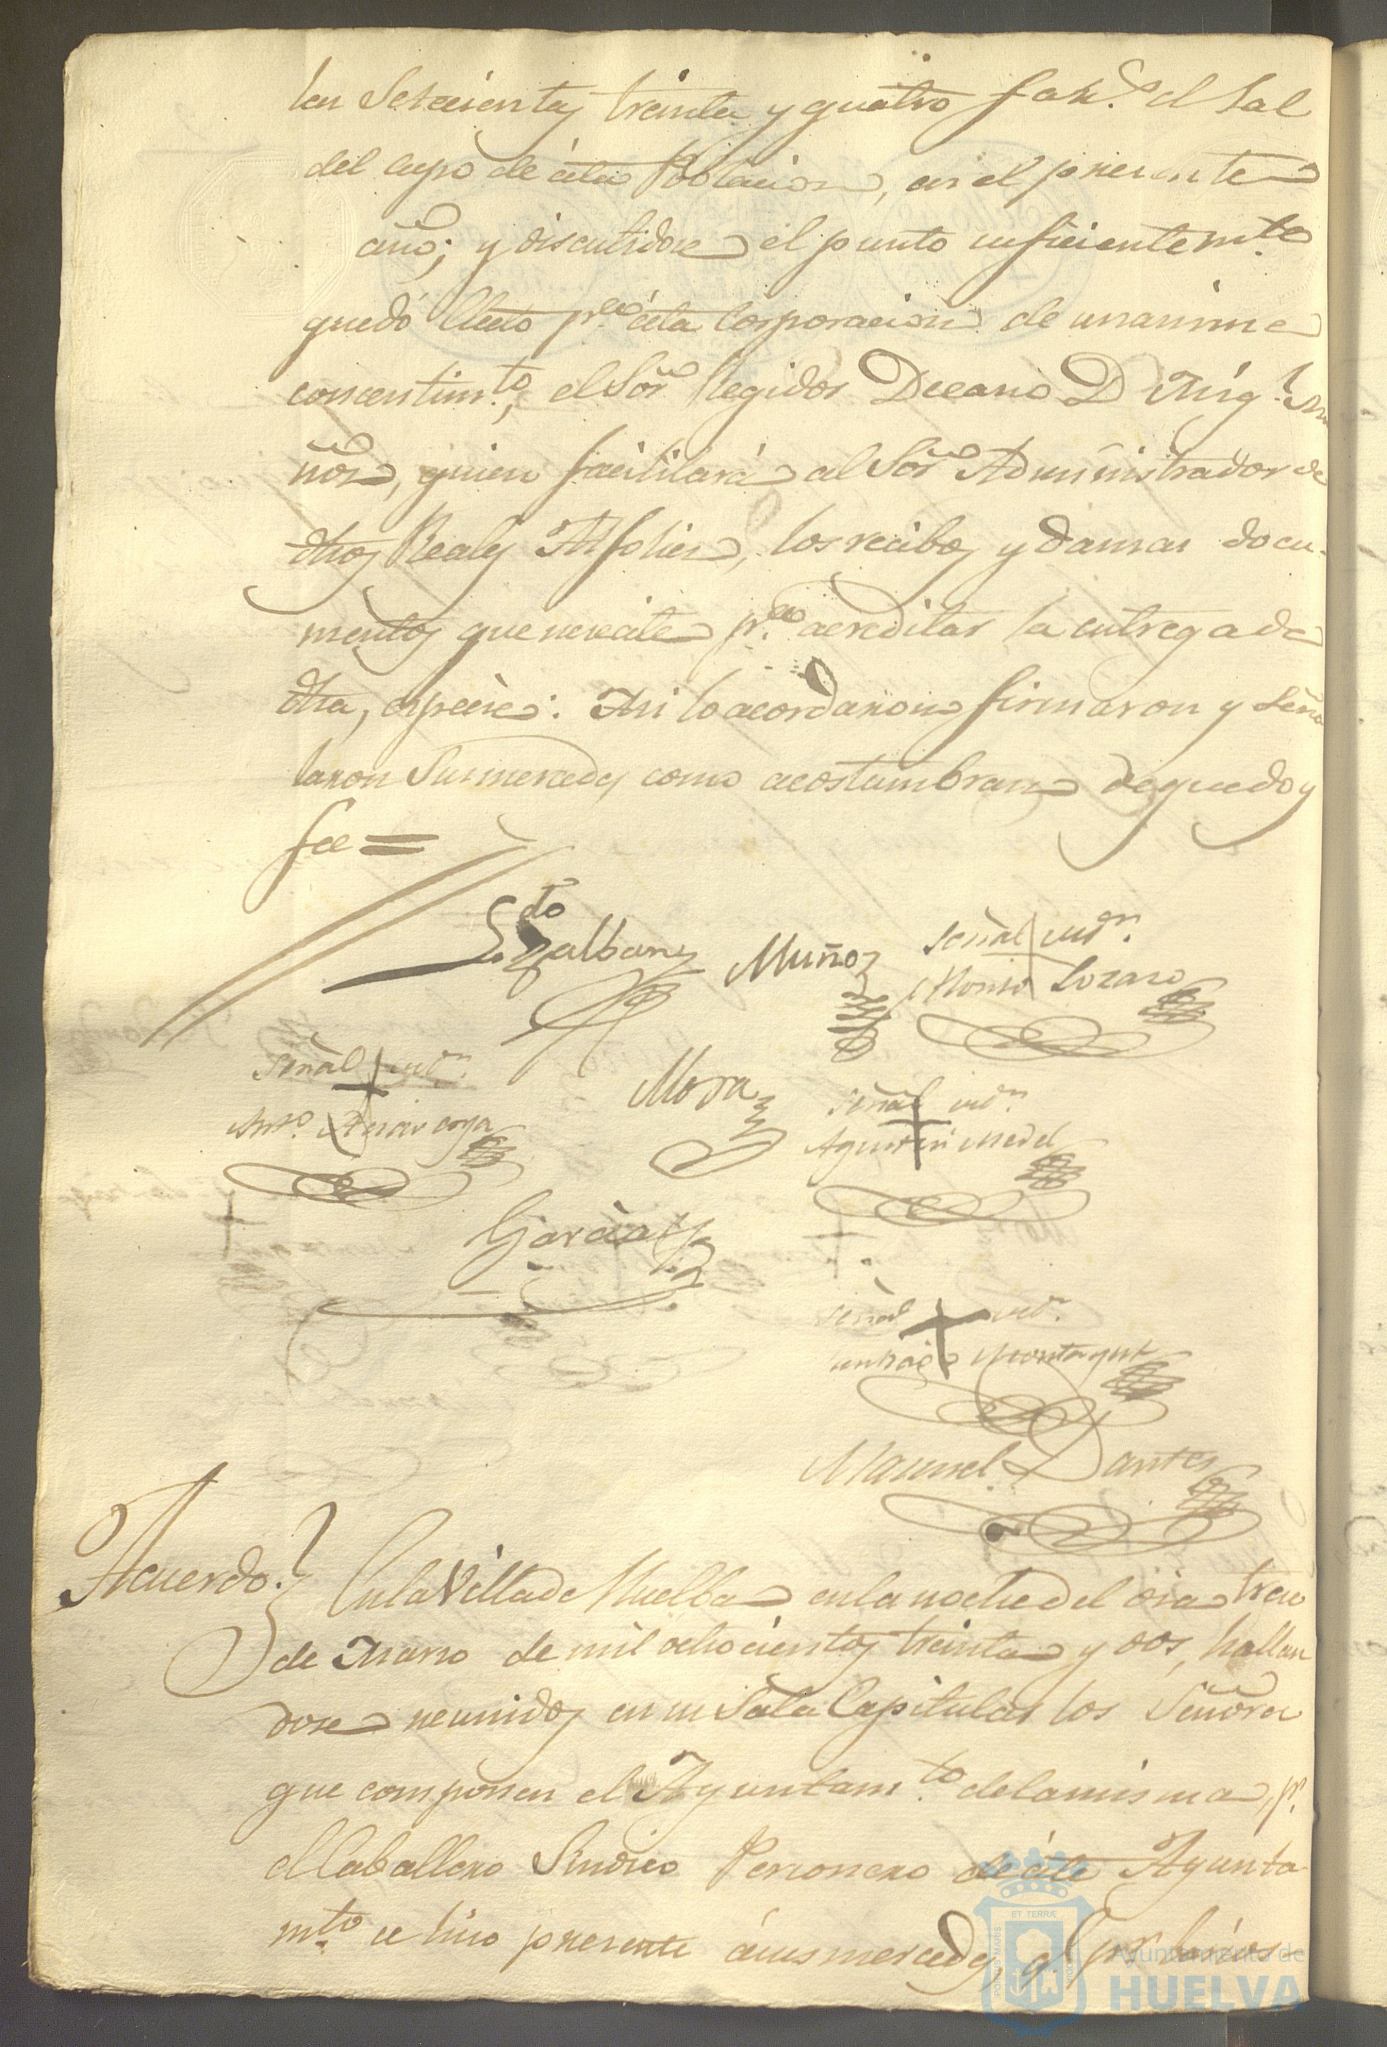 las Setecientas treinta y quatro fan.s d Sal
del cupo de ésta Poblacion, en el presente
año; y discutidose el punto suficientem.te
quedó electo p.r ésta Corporacion de unanime
concentim.to, el Sor. Regidor Decano D Mig.l Mu
ñoz, quien facilitará al Sor. Administrador de
dhos Reales Alfolies, los recibos y damas docu-
mentos que necesite p.a acreditar la entrega de
dha, especie. Asi lo acordaron firmaron y Seña
laron Sus mercedes como acostumbran de que doy
fee =
Ldo
Galban Muñoz Señal de
Alonso Lozano
Señal de
Anto.
Mora
Señal de
Agustin Medel
Garcia
Señal de
Manuel Dantes
Acuerdo. En la Villa de Huelba en la noche del dia trece
de Marzo de mil ochocientos treinta y dos, hallan
dose reunidos en su Sala Capitular los Señores
que componen el Ayuntam.to de la misma, p.r
el Caballero Sindico Personero de éste Ayunta
m.to se hizo presente á sus mercedes, q.e p.r
Ayuntamiento de
HUELVA